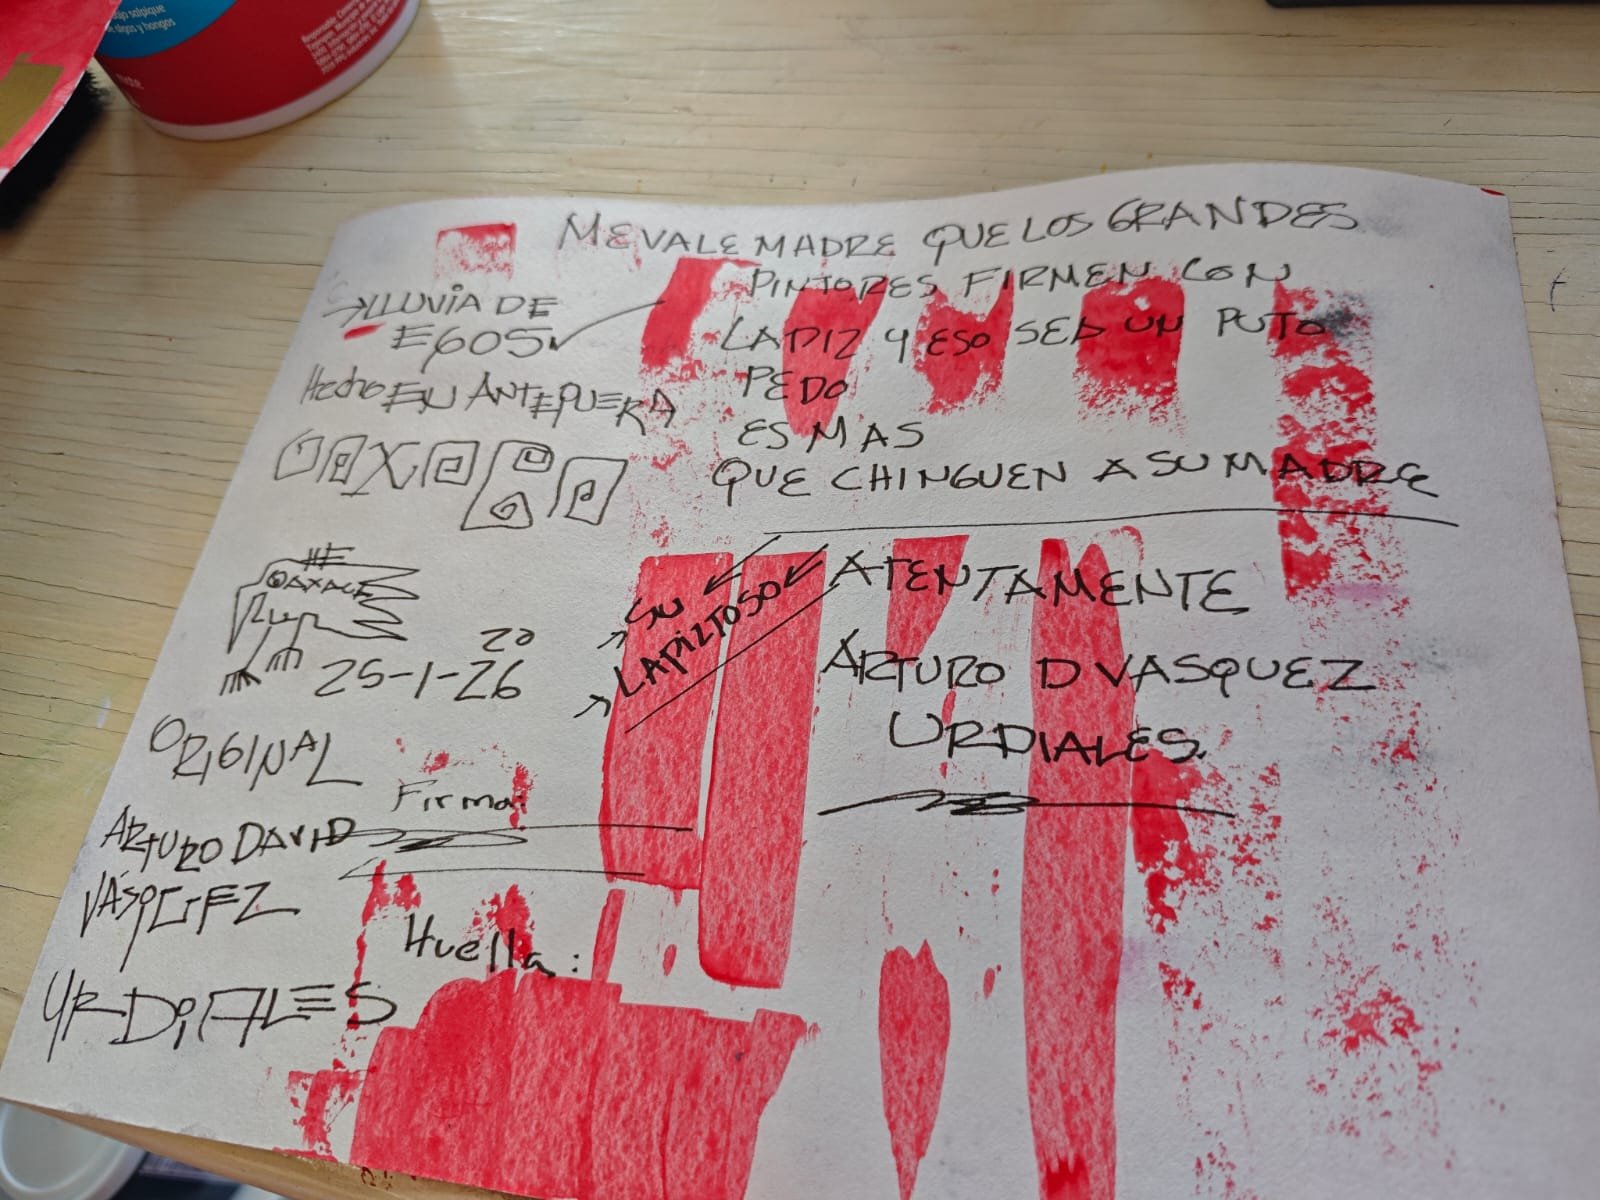 ME VALE MADRE QUE LOS GRANDES
PINTORES FIRMEN CON
LAPIZ Y ESO SEA UN PUTO
PEDO
ES MAS
QUE CHINGUEN A SU MADRE
ATENTAMENTE
ARTURO D VASQUEZ
URDIALES.
SU
LAPIZTOSO
→ LLUVIA DE
EGOS
Hecho EN ANTEQUERA
OAXACA
HE
OAXACA
20
25-1-26
ORIGINAL
Firma:
ARTURO DAVID
VÁSQUEZ
URDIALES
Huella: